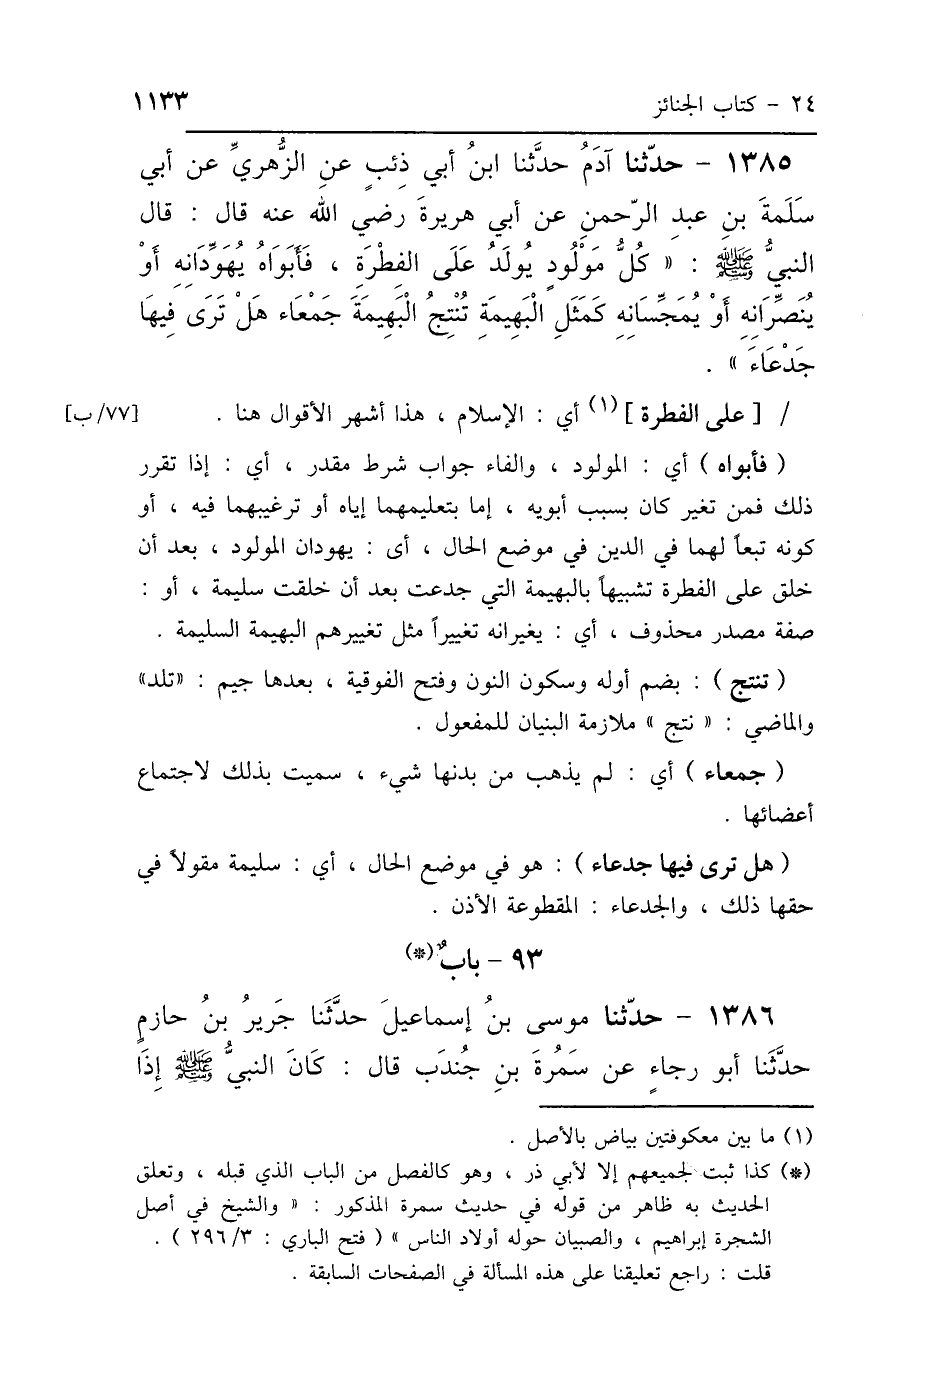 ٢٤ - كتاب الجنائز ١١٣٣
١٣٨٥ - حدّثنا آدَمُ حدَّثنا ابنُ أبي ذئبٍ عنِ الزُّهريِّ عن أبي
سَلَمةَ بنِ عبدِ الرّحمنِ عن أبي هريرةَ رضي الله عنه قال : قال
النبيُّ ﷺ : « كُلُّ مَوْلُودٍ يُولَدُ عَلَى الفِطْرَةِ ، فَأَبَوَاهُ يُهَوِّدَانِهِ أَوْ
يُنَصِّرَانِهِ أَوْ يُمَجِّسَانِهِ كَمَثَلِ الْبَهِيمَةِ تُنْتِجُ الْبَهِيمَةَ جَمْعَاء هَلْ تَرَى فِيهَا
جَدْعَاءَ » .
/ [ على الفطرة ] (١) أي : الإسلام ، هذا أشهر الأقوال هنا . [٧٧/ب]
( فأبواه ) أي : المولود ، والفاء جواب شرط مقدر ، أي : إذا تقرر
ذلك فمن تغير كان بسبب أبويه ، إما بتعليمهما إياه أو ترغيبهما فيه ، أو
كونه تبعاً لهما في الدين في موضع الحال ، أى : يهودان المولود ، بعد أن
خلق على الفطرة تشبيهاً بالبهيمة التي جدعت بعد أن خلقت سليمة ، أو :
صفة مصدر محذوف ، أي : يغيرانه تغييراً مثل تغييرهم البهيمة السليمة .
( تنتج ) : بضم أوله وسكون النون وفتح الفوقية ، بعدها جيم : «تلد»
والماضي : « نتج » ملازمة البنيان للمفعول .
( جمعاء ) أي : لم يذهب من بدنها شيء ، سميت بذلك لاجتماع
أعضائها .
( هل ترى فيها جدعاء ) : هو في موضع الحال ، أي : سليمة مقولاً في
حقها ذلك ، والجدعاء : المقطوعة الأذن .
٩٣ - بابٌ (*)
١٣٨٦ - حدّثنا موسى بنُ إسماعيلَ حدَّثَنا جَريرُ بنُ حازمٍ
حدَّثَنا أبو رجاءٍ عن سَمُرةَ بنِ جُندَب قال : كَانَ النبيُّ ﷺ إِذَا
(١) ما بين معكوفتين بياض بالأصل .
(*) كذا ثبت لجميعهم إلا لأبي ذر ، وهو كالفصل من الباب الذي قبله ، وتعلق
الحديث به ظاهر من قوله في حديث سمرة المذكور : « والشيخ في أصل
الشجرة إبراهيم ، والصبيان حوله أولاد الناس » ( فتح الباري : ٢٩٦/٣ ) .
قلت : راجع تعليقنا على هذه المسألة في الصفحات السابقة .